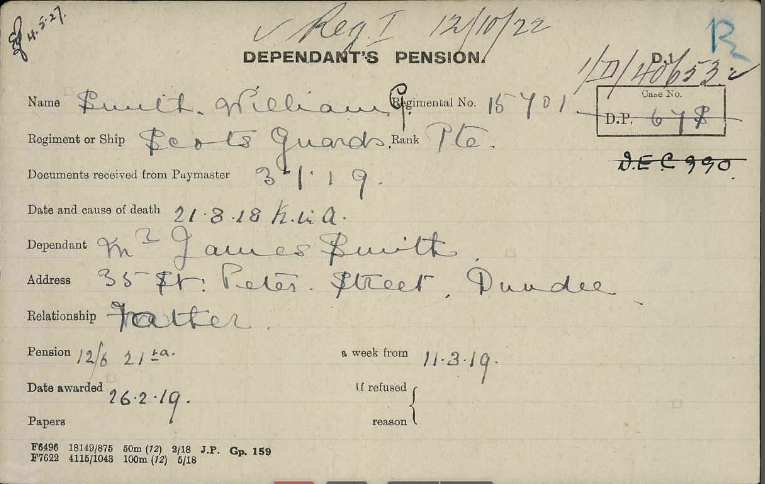 4.5.27.
✓ Reg I 12/10/22
R
DEPENDANT'S PENSION.
D.1
1/D/40653
Name Smith. William G. Regimental No. 15701
Case No.
D.P. 678
Regiment or Ship Scots Guards. Rank Pte.
DEC 990.
Documents received from Paymaster 3.1.19.
Date and cause of death 21.8.18 K.in A.
Dependant Mr James Smith.
Address 35 St. Peter. Street, Dundee
Relationship Father.
Pension 12/6 a week from 11.3.19.
Date awarded 26.2.19. If refused
Papers reason
F6496 18149/875 50m (12) 2/18 J.P. Gp. 159
F7622 4115/1043 100m (12) 5/18